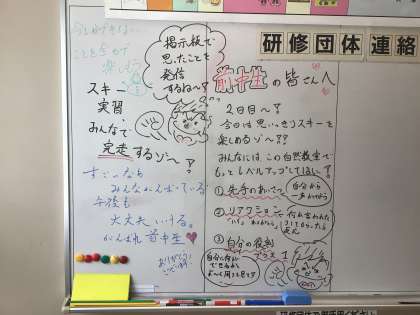 研修団体連絡
今しかできない
ことを全力で
楽しもう
掲示板で
思ったことを
発信
するね〜?
スキー
実習
みんなで
完走するゾ〜?
すごいなあ
みんながんばっている
午後も
大丈夫いける。
がんばれ 前半生
ありがとう
ございます
前半生の皆さんへ
2日目〜?
今日は思いっきりスキーを
楽しめるゾ〜??
みんなには、この自然教室で
もっとレベルアップしてほしい
① 先手のあいさつ
自分から
一声かけよう
② リアクション
③ 自分の役割
プラス1